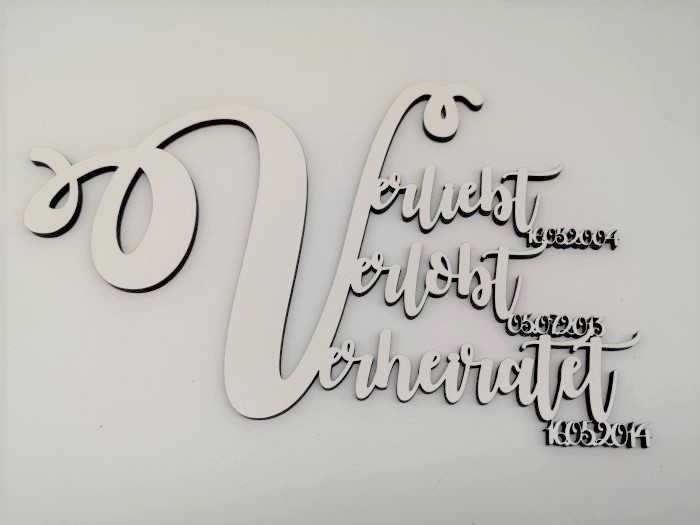 Verliebt
16.05.2004
Verlobt
05.07.2013
Verheiratet
16.05.2014